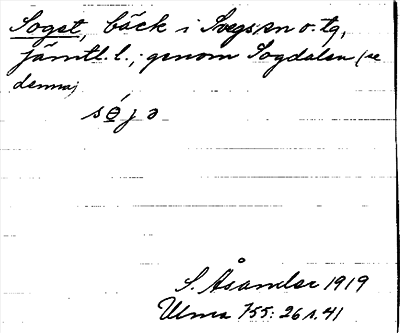 Soget, bäck i Svegs sn o. tg,
jämtl. l.; genom Sogdalen (se
denna)
søjə
S. Åsander 1919
Ulma 755: 26 s. 41